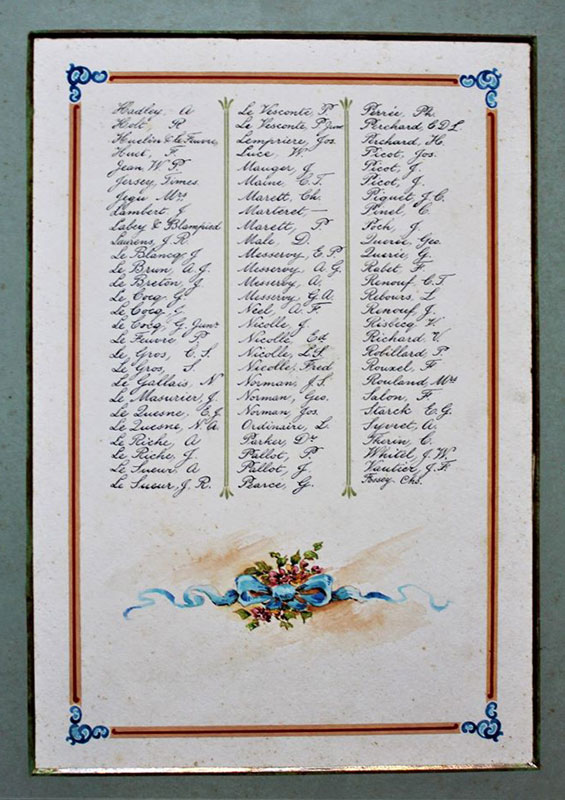 Hadley, A
Holt R
Huelin & Le Feuvre,
Huet, F.
Jean W. P.
Jersey Times.
Jegu Mrs
Lambert, J.
Labey & Blampied
Laurens, J. R.
Le Blancq J
Le Brun, A. J.
Le Breton J
Le Cocq J.
Le Cocq J
Le Cocq, G. Junr.
Le Feuvre P.
Le Gros, C. S.
Le Gros, S.
Le Gallais, N
Le Masurier, J.
Le Quesne, E. J.
Le Quesne, N. A.
Le Riche, A
Le Riche, J.
Le Sueur A
Le Sueur, J. R.
Le Vesconte P
Le Vesconte, P Junr
Lempriere, Jos
Luce, W.
Mauger, J
Maine, C. T.
Marett, Ch.
Marteret —
Marett, P
Male, D.
Messervy, E. P.
Messervy, A. G.
Messervy, A.
Messervy, G. A.
Neel, A. F.
Nicolle J.
Nicolle, Ed
Nicolle, L. S.
Nicolle, Fred
Norman, J. S.
Norman, Geo.
Norman, Jos
Ordinaire, L.
Parker, Dr
Pallot, P.
Pallot, J.
Pearce, G.
Perrée, Ph.
Perchard, E D L
Perchard, H.
Picot, Jos.
Picot, J.
Picot, J.
Piquet, J. C.
Pinel, C.
Poch, J
Querée, Geo.
Querée, G.
Rabet F.
Renouf, C. T.
Rebours, L
Renouf, J.
Risbecq V.
Richard, V.
Robillard, P.
Rouxel, F.
Rouland, Mrs
Salon, F.
Starck E. G.
Syvret, A.
Therin, C.
Whitel, J. W.
Vautier, J. F.
Fossey Chs.